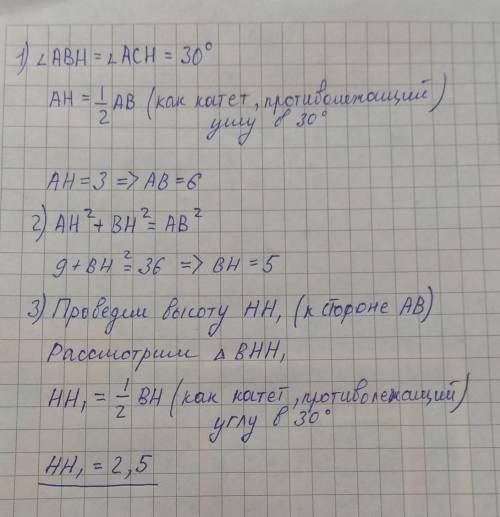 1) ∠ABH = ∠ACH = 30°
AH = 1/2 AB (как катет, противолежащий)
углу в 30°
AH = 3 => AB = 6
2) AH² + BH² = AB²
9 + BH² = 36 => BH = 5
3) Проведем высоту HH₁ (к стороне AB)
Рассмотрим △ BHH₁
HH₁ = 1/2 BH (как катет, противолежащий)
углу в 30°
HH₁ = 2,5